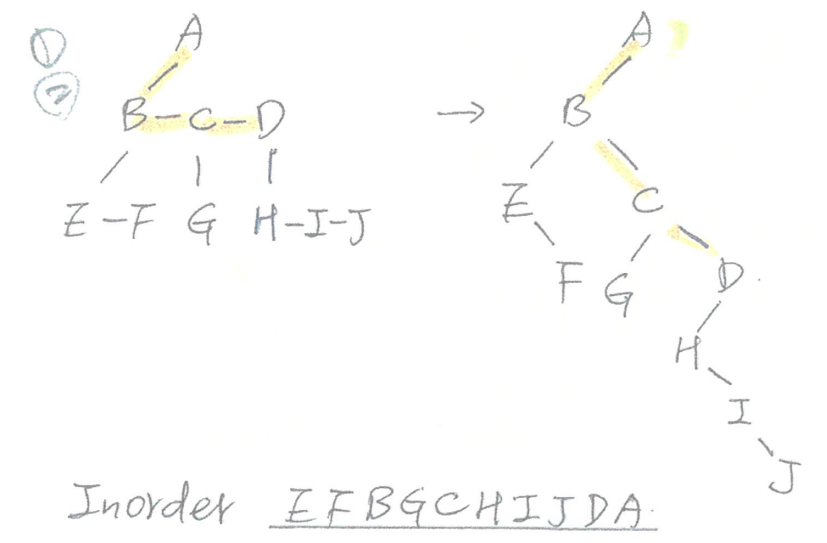 ①
②
A
B-C-D
E-F G H-I-J
→
A
B
E C
F G D
H
I
J
Inorder EFBGCHIJDA